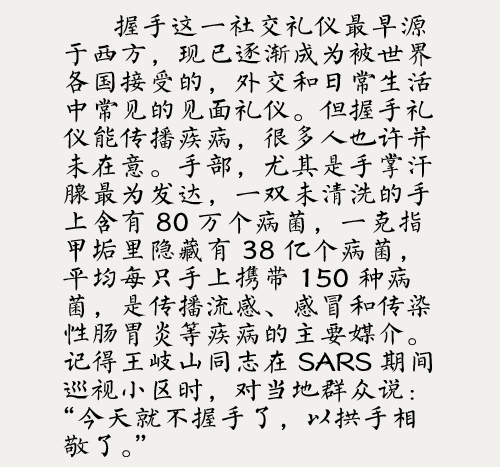 握手这一社交礼仪最早源
于西方，现已逐渐成为被世界
各国接受的，外交和日常生活
中常见的见面礼仪。但握手礼
仪能传播疾病，很多人也许并
未在意。手部，尤其是手掌汗
腺最为发达，一双未清洗的手
上含有 80 万个病菌，一克指
甲垢里隐藏有 38 亿个病菌，
平均每只手上携带 150 种病
菌，是传播流感、感冒和传染
性肠胃炎等疾病的主要媒介。
记得王岐山同志在 SARS 期间
巡视小区时，对当地群众说：
“今天就不握手了，以拱手相
敬了。”